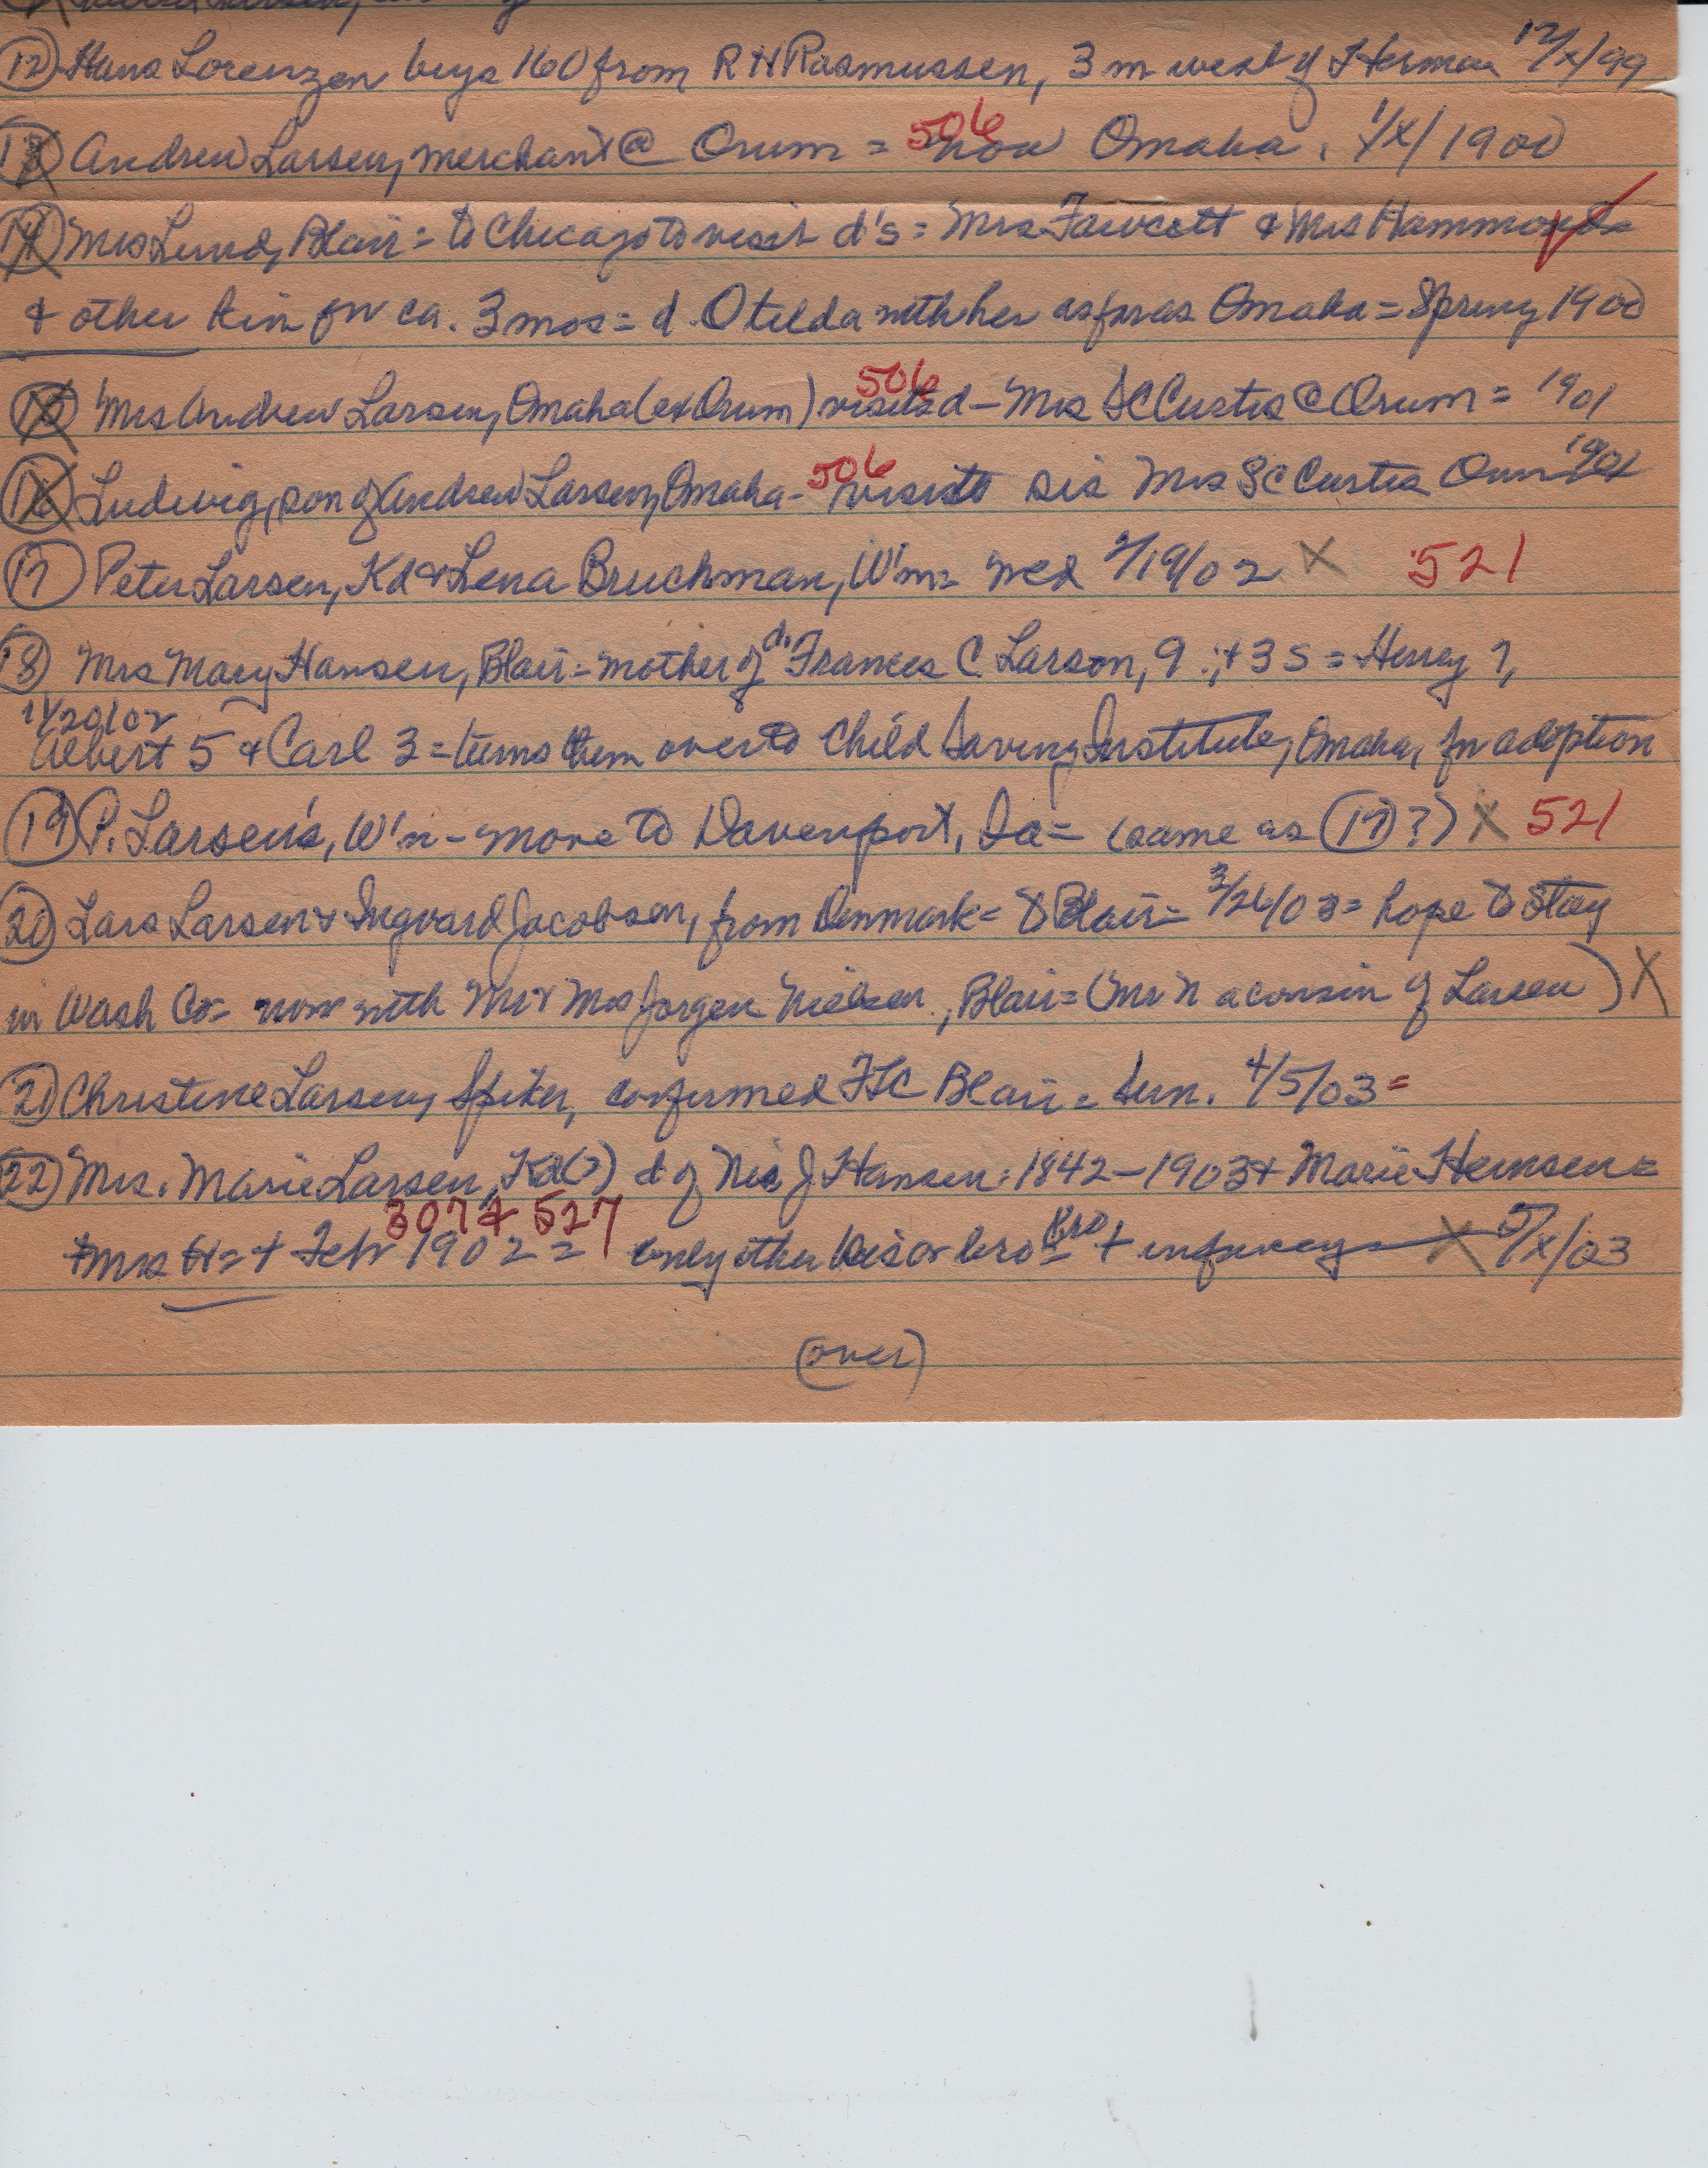 (12) Hans Lorenzen buys 160 from R H Rasmussen, 3 m west of Herman 12/x/99
(13) Andrew Larsen, merchant @ Orum = 506 now Omaha. 1/x/1900
(14) Mrs Lund, Blair = to Chicago to visit d's = Mrs Fawcett & Mrs Hammond
& other kin for ca. 3 mos = d. Otelda with her as far as Omaha = Spring 1900
(15) Mrs Andrew Larsen, Omaha (ex Orum) 506 visits d - Mrs S C Curtis @ Orum = 1901
(16) Ludwig, son of Andrew Larsen, Omaha - 506 visits sis Mrs S C Curtis Orum 1901
(17) Peter Larsen, Kd & Lena Bruchman, W'm = wed 2/19/02 X 521
(18) Mrs Mary Hansen, Blair - mother of d. Frances C. Larson, 9; + 3 s = Henry 7,
11/20/02
Albert 5 & Carl 3 = turns them over to Child Saving Institute, Omaha, for adoption
(19) P. Larsen's, W'n - move to Davenport, Ia = (same as (17)?) X 521
(20) Lars Larsen & Ingvard Jacobsen, from Denmark = to Blair = 3/26/03 = hope to stay
in Wash Co = now with Mr & Mrs Jorgen Nielsen, Blair = (Mr N a cousin of Larsen) X
(21) Christine Larsen, Spiker, confirmed FLC Blair = Sun. 4/5/03 =
(22) Mrs. Marie Larsen, Kd(?) d of Nis J Hansen: 1842-1903 & Marie Hemsen =
307 & 527
Mrs H = + Feb 1902 = only other sis or bro = bro + infancy X 5/x/03
(over)